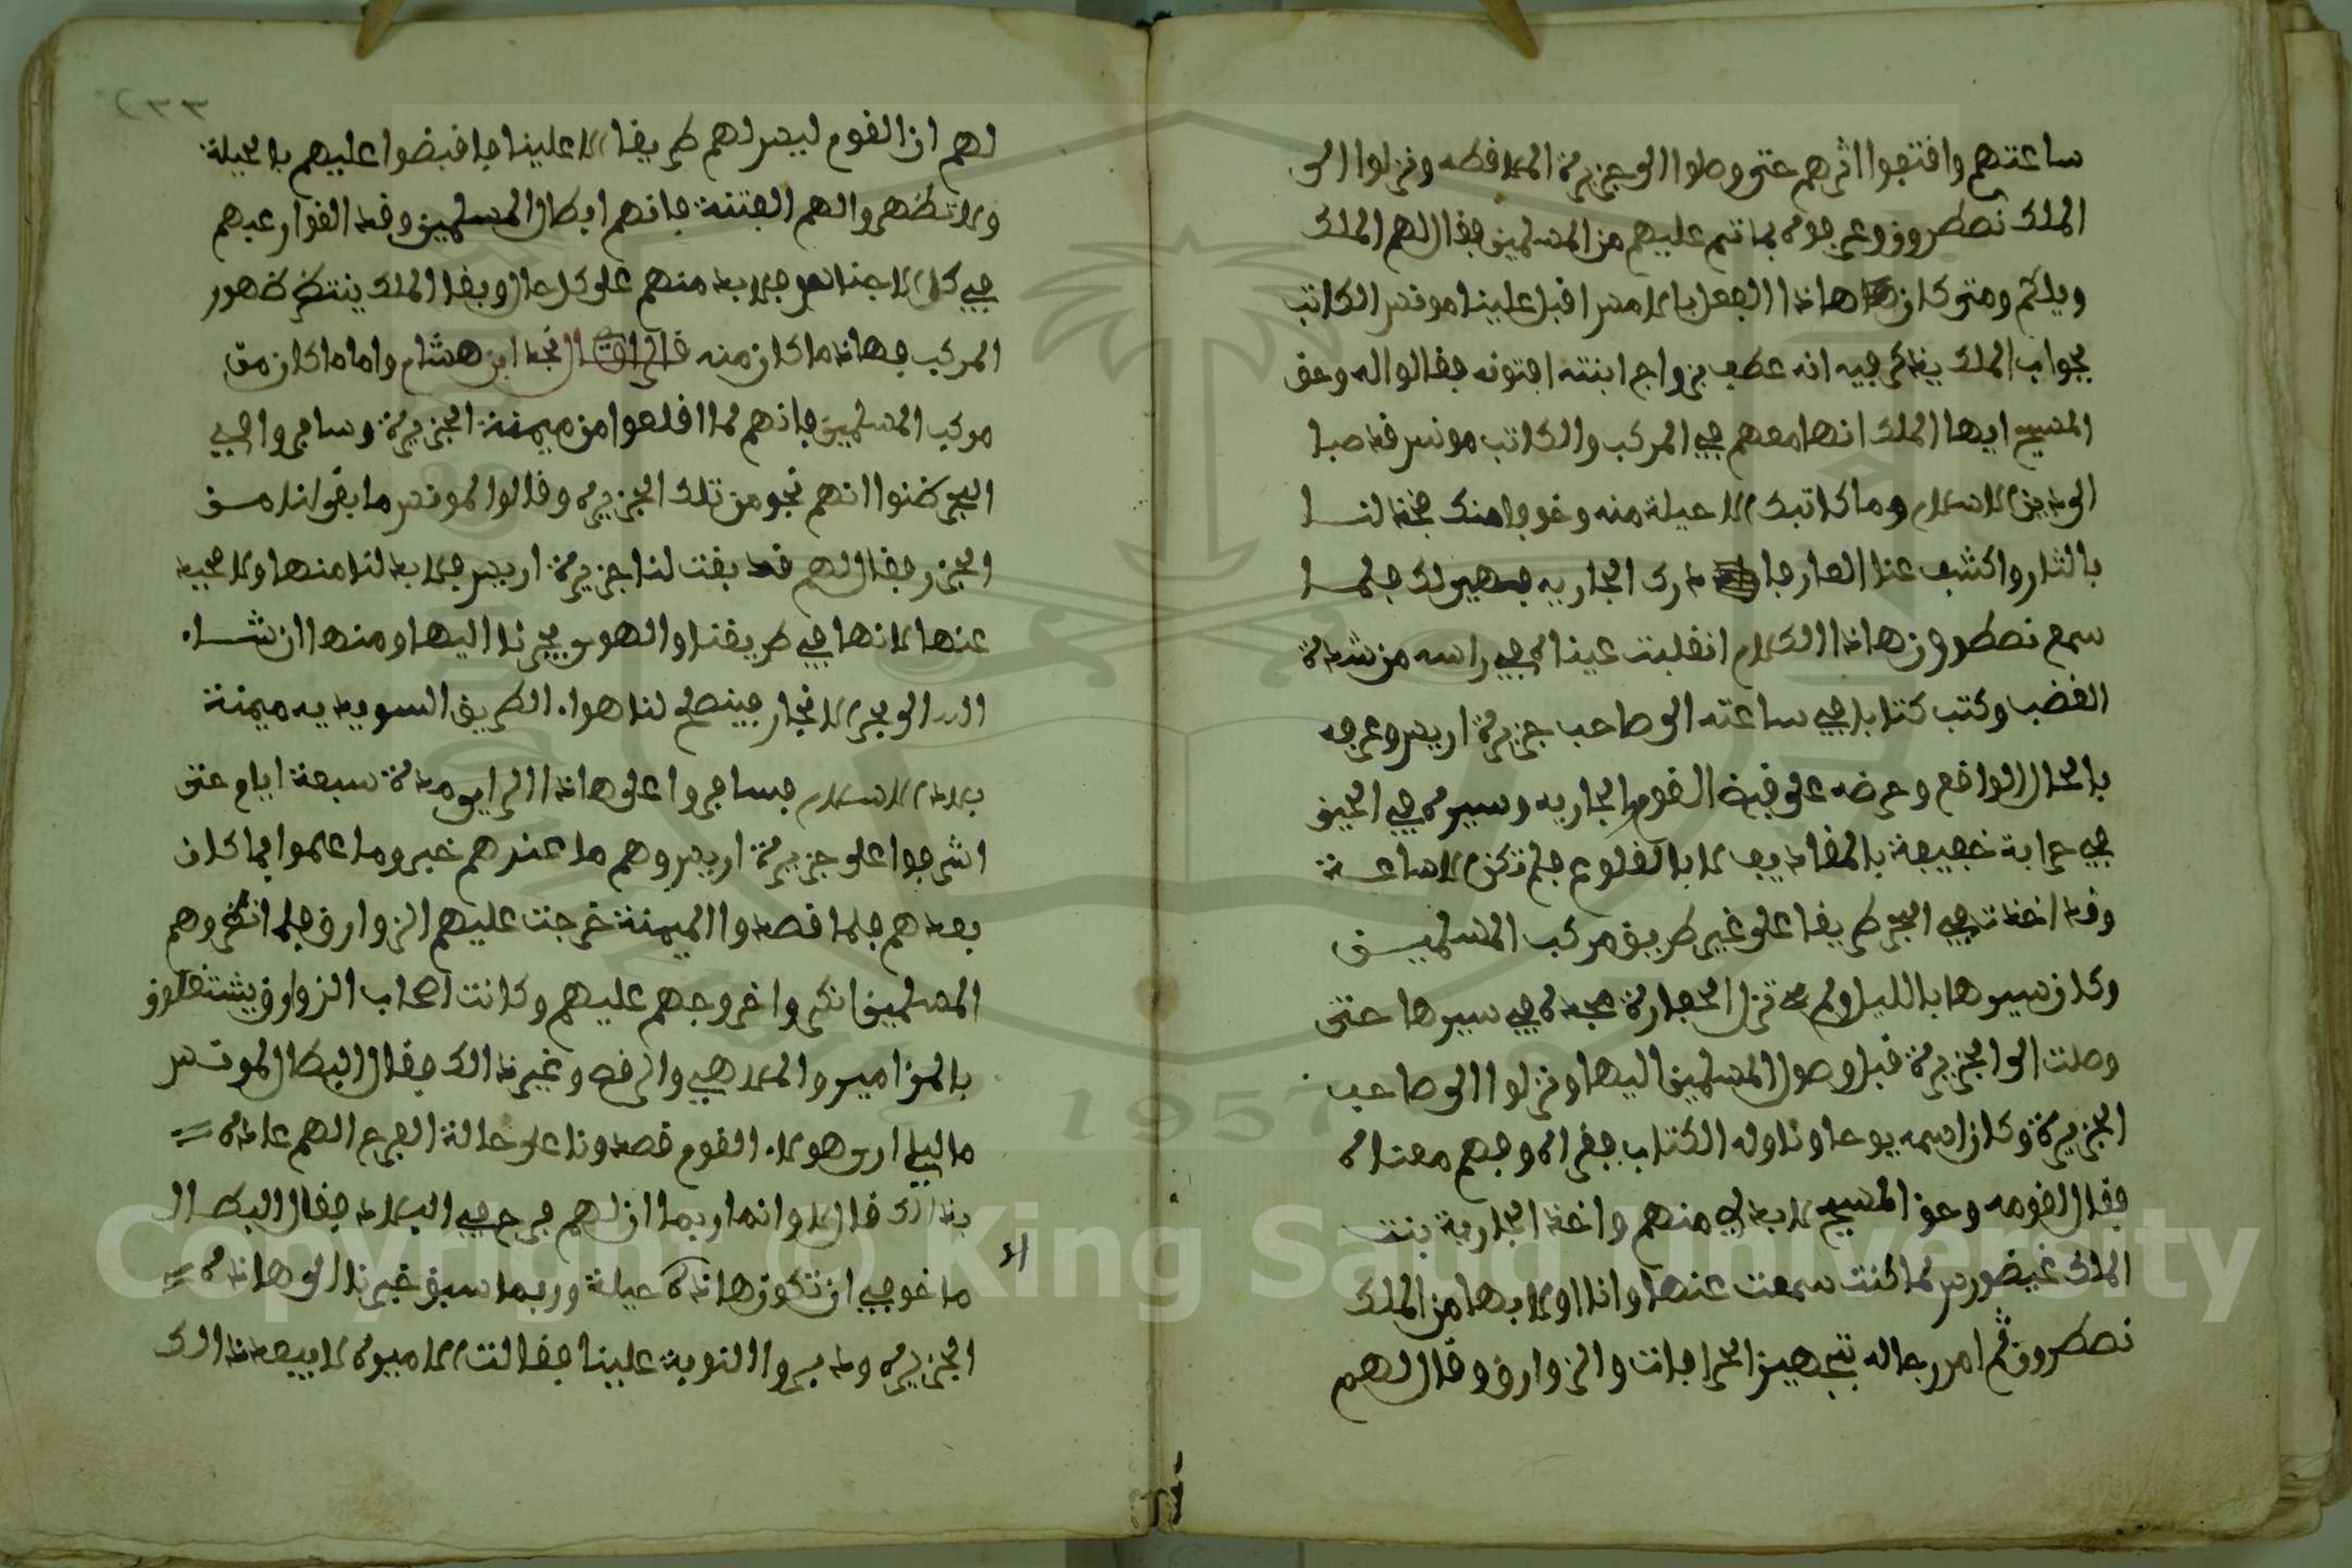 ساعتهم وافتفوا اثرهم حتى وصلوا الى جزيرة الملافطه ونزلوا الى
الملك نصطرون وعرفوه بما تم عليهم من المسلمين فقال لهم الملك
ويلكم ومتى كان هاذا الفعل بالامس اقبل علينا مونس الكاتب
بجواب الملك يذكر فيه انه عطب بزواج ابنته افتونه فقالوا له وحق
المسيح ايها الملك انها معهم في المركب والكاتب مونس قد صبا
الى دين الاسلام وما كاتبك الا حيلة منه وخوفا منك فخذ لنا
بالثار واكشف عنا العار فا درك الجاريه فهي لك فلما
سمع نصطرون هاذا الكلام انقلبت عيناه في راسه من شدة
الغضب وكتب كتابا في ساعته الى صاحب جزيرة اريس وعرفه
بالحال الواقع وحرضه على قبض القوم والجاريه وسيره في الحين
في حرابة خفيفة بالمقاديف لا بالقلوع فلم تكن الا ساعة
وقد اخذت في البحر طريقا على غير طريق مركب المسلمين
وكان سيرها بالليل ولم تزل الحفارة مجدة في سيرها حتى
وصلت الى الجزيرة قبل وصول المسلمين اليها ونزلوا الى صاحب
الجزيرة وكان اسمه يوحا وناوله الكتاب فقراه وفهم معناه
فقال لقومه وحق المسيح لا بد لي منهم واخذ الجارية بنت
الملك غيضورس لما كنت سمعت عنها وانا اولا بها من الملك
نصطرون ثم امر رجاله بتجهيز الحرافات والزوارق وقال لهم
٢٣٣
لهم ان القوم ليس لهم طريقا الا علينا فاقبضوا عليهم بالحيلة
ولا تظهروا لهم الفتنة فانهم ابطال المسلمين وقد القوا رعبهم
في كل الاجناس فلا بد منهم على كل حال وبقا الملك ينتظر ظهور
المركب فهاذا ما كان منه قال نجد ابن هشام واما ما كان من
مركب المسلمين فانهم لما اقلعوا من ميمنة الجزيرة وسافروا في
البحر ظنوا انهم نجو من تلك الجزيره وقالوا لمونس ما بقى لنا من
الجزر فقال لهم قد بقت لنا جزيرة اريس فلا بد لنا منها ولا محيد
عنها لانها في طريقنا والهوى يجرنا اليها ومنها ان شاء
الله الى بحر الانجار فينصلح لنا هواء الطريق السويديه ميمنة
بلاد الاسلام فسافروا على هاذا الراي مدة سبعة ايام حتى
اشرفوا على جزيرة اريس وهم ما عندهم خبر وما علموا بما كان
بعدهم فلما قصدوا الميمنة خرجت عليهم الزوارق فلما انظروهم
المسلمين انكروا خروجهم عليهم وكانت اصحاب الزوارق يشتغلون
بالمزامير والملاهي والرقص وغير ذالك فقال البطال لمونس
ما لي ارى هولاء القوم قصدونا على حالة الفرح الهم عادة
بذالك قال لا وانما ربما ان لهم فرح في البلاد فقال البطال
ما خوفي الا ان تكون هاذه حيلة وربما سبق خبرنا الى هاذه
الجزيره ودبروا النوبة علينا فقالت الاميره لا يبعد ذالك